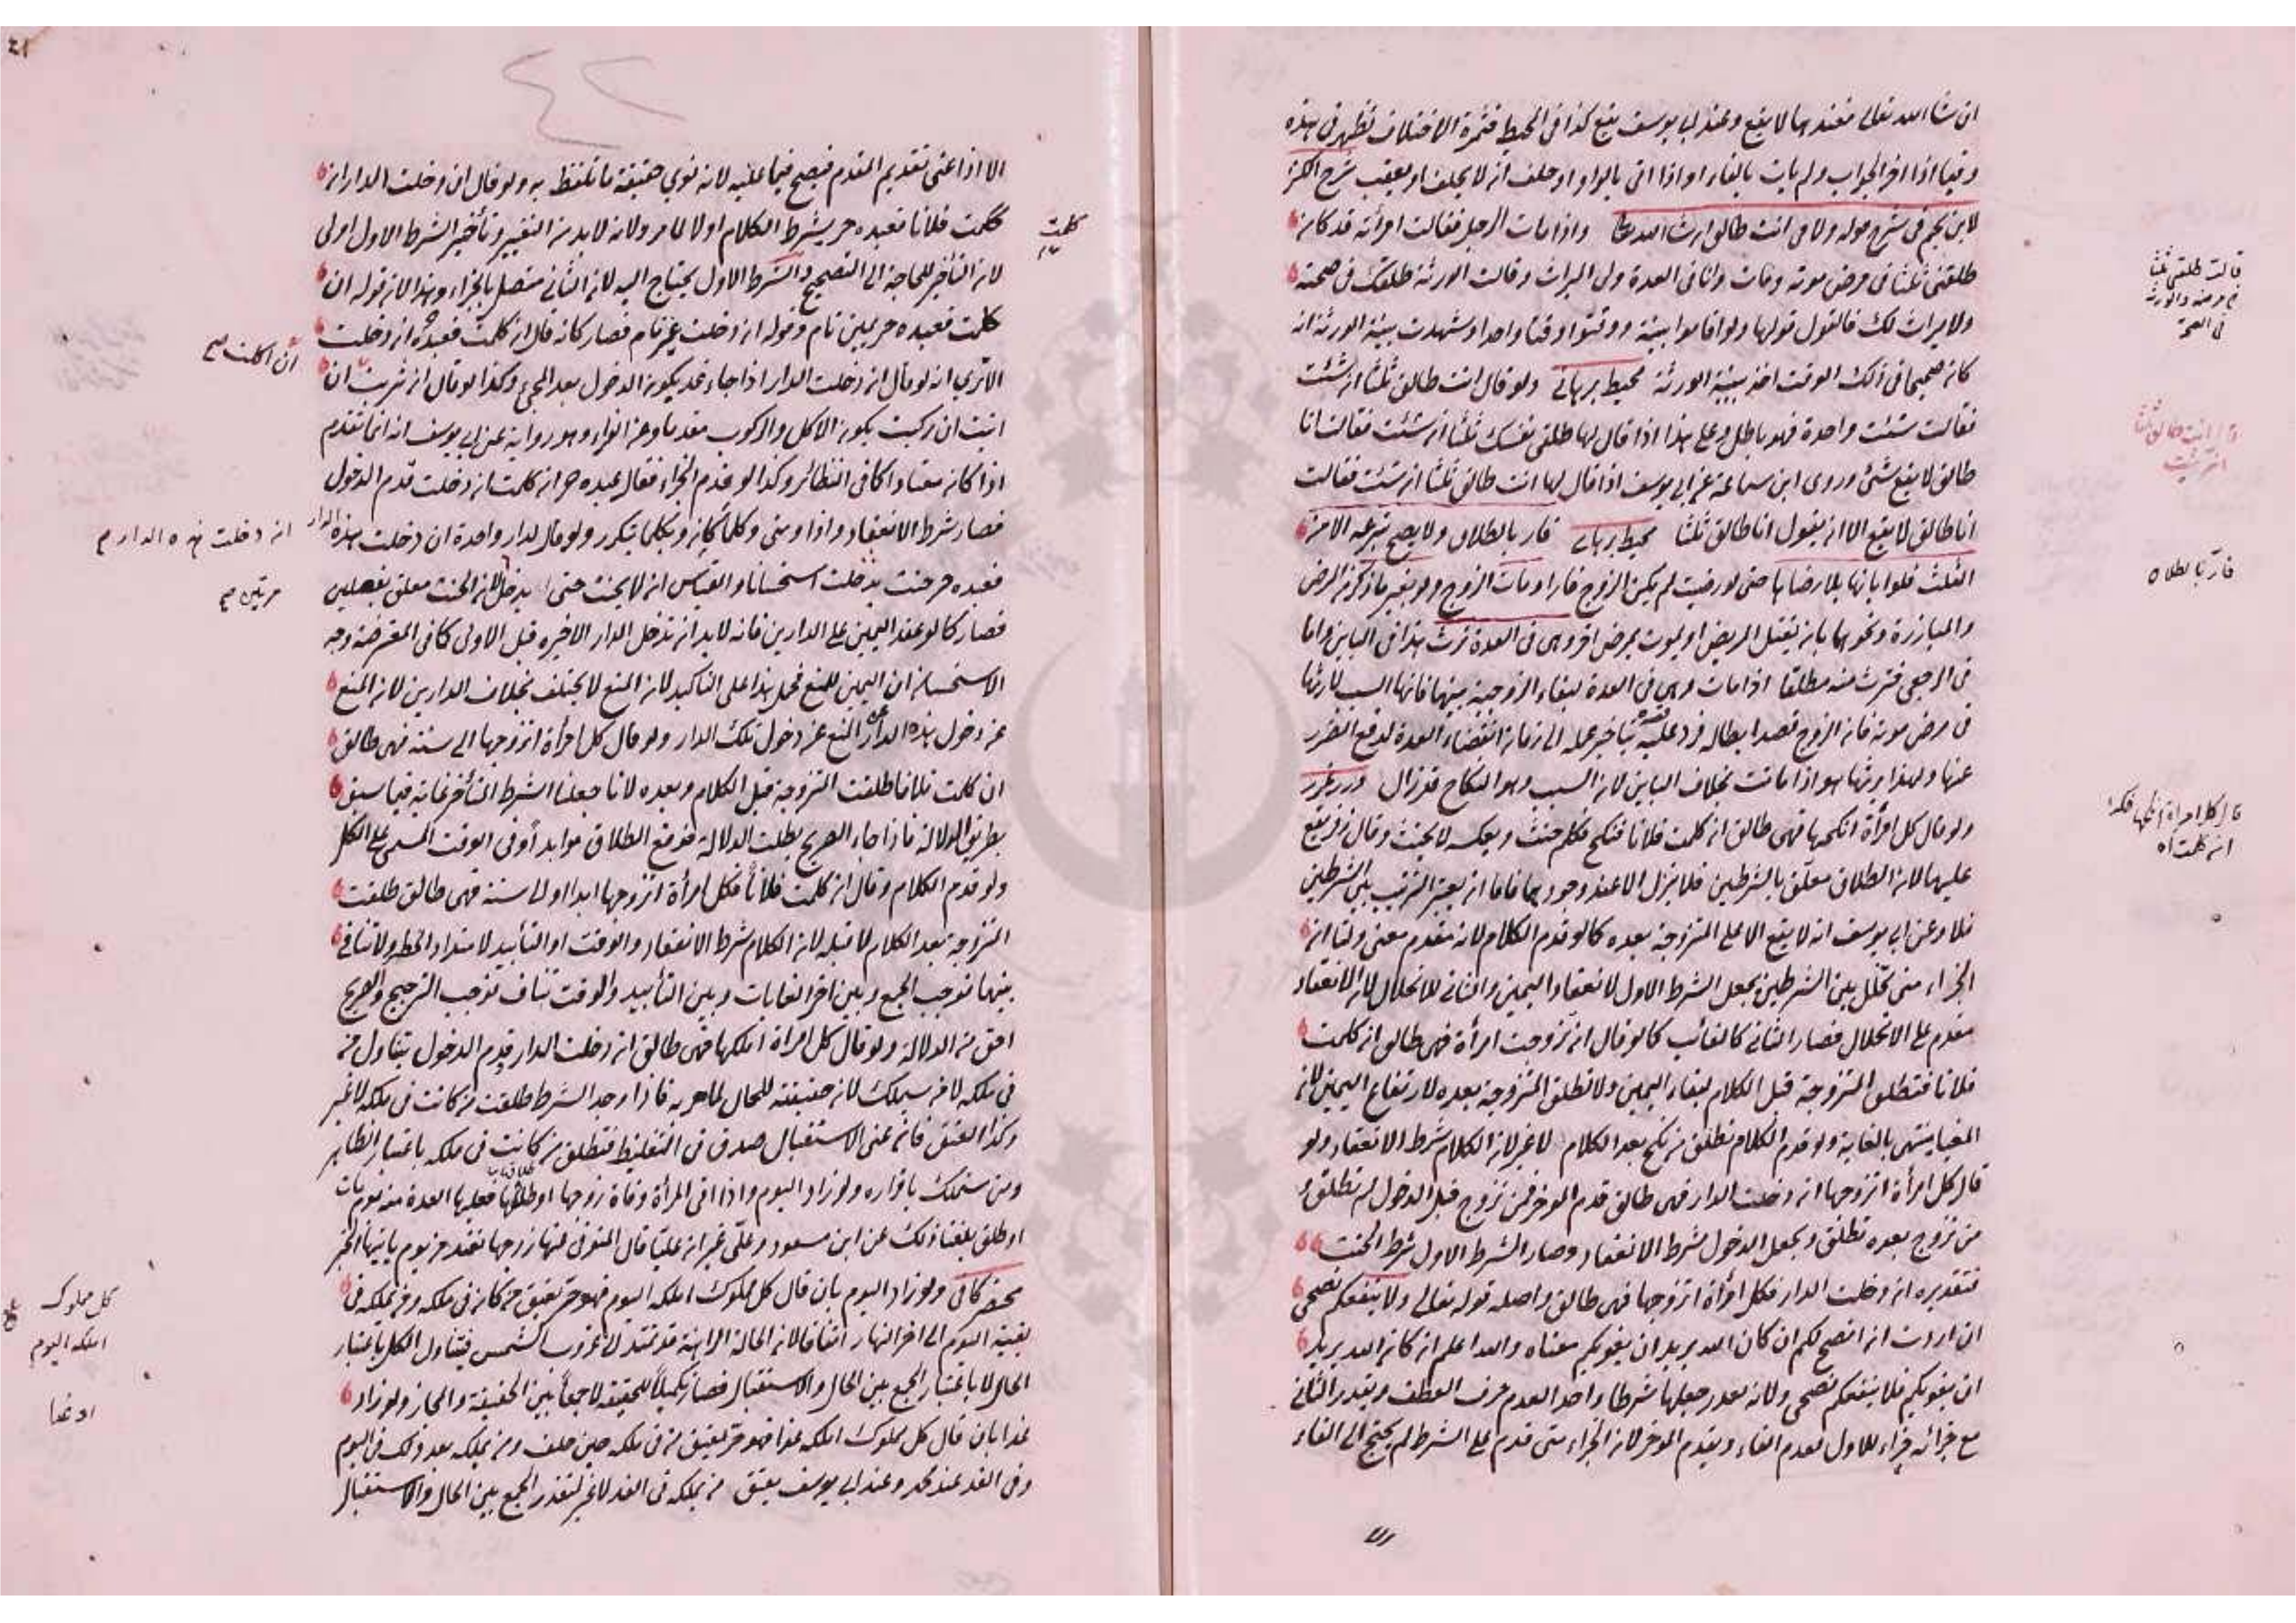 ان شاء الله تعالى فعندهما لا يقع وعند ابي يوسف يقع كذا في المحيط فثمرة الاختلاف تظهر في هذه
وفيما اذا اخر الجواب ولم يات بالفاء او اذا اتى بالواو او حلف انه لا يحلف او يعقب شرح الكنز
لابن نجيم في شرح قوله ولا في انت طالق ان شاء الله واذا مات الرجل فقالت امرأته قد كان
طلقني ثلثا في مرض موته ومات وانا في العدة ولي الميراث وقالت الورثة طلقك في صحته
ولا ميراث لك فالقول قولها ولو اقاموا بينة ووقتوا وقتا واحدا وشهدت بينة الورثة انه
كان صحيحا في ذلك الوقت اخذ ببينة الورثة محيط برهاني ولو قال انت طالق ثلثا ان شئت
فقالت شئت واحدة فهو باطل وعلى هذا اذا قال لها طلقي نفسك ثلثا ان شئت فقالت انا
طالق لا يقع شئ وروى ابن سماعة عن ابي يوسف اذا قال لها انت طالق ثلثا ان شئت فقالت
انا طالق لا يقع الا ان يقول انا طالق ثلثا محيط برهاني فار بالطلاق ولا يصح تبرعه الا من
الثلث فلو ابانها بلا رضاها حتى لو رضيت لم يكن الزوج فارا ومات الزوج ولو بغير ما ذكر من المرض
والمبارزة ونحوهما بان يقتل المريض او يموت بمرض اخر وهي في العدة ترث هذا في الباين واما
في الرجعي فترث منه مطلقا اذا مات وهي في العدة لبقاء الزوجية بينهما فانها السبب لارثها
في مرض موته فان الزوج قصد ابطاله فرد عليه قصده بتاخير عمله الى زمان انقضاء العدة لدفع الضرر
عنها ولهذا يرثها هو اذا ماتت بخلاف الباين لان السبب وهو النكاح قد زال درر غرر
ولو قال كل امرأة انكحها فهي طالق ان كلمت فلانا فنكح فكلم حنث وبعكسه لا يحنث وقال زفر يقع
عليهما لان الطلاق معلق بالشرطين فلا ينزل الا عند وجودهما فاما ان يعتبر الترتيب بين الشرطين
فلا وعن ابي يوسف انه لا يقع الا على المتزوجة بعده كما لو قدم الكلام لانه مقدم معنى ولنا ان
الجزاء متى تخلل بين الشرطين يجعل الشرط الاول لانعقاد اليمين والثاني للانحلال لان الانعقاد
مقدم على الانحلال فصار الثاني كالغائب كما لو قال ان تزوجت امرأة فهي طالق ان كلمت
فلانا فتطلق المتزوجة قبل الكلام لبقاء اليمين ولا تطلق المتزوجة بعده لارتفاع اليمين لان
المغيا ينتهي بالغاية ولو قدم الكلام تطلق من نكح بعد الكلام لا غير لان الكلام شرط الانعقاد ولو
قال كل امرأة اتزوجها ان دخلت الدار فهي طالق قدم الموخر فمن تزوج قبل الدخول لم تطلق و
من تزوج بعده تطلق ويجعل الدخول شرط الانعقاد وصار الشرط الاول شرط الحنث
فتقديره ان دخلت الدار فكل امرأة اتزوجها فهي طالق واصله قوله تعالى ولا ينفعكم نصحي
ان اردت ان انصح لكم ان كان الله يريد ان يغويكم معناه والله اعلم ان كان الله يريد
ان يغويكم فلا ينفعكم نصحي ولانه تعذر جعلهما شرطا واحدا لعدم حرف العطف ويتعذر الثاني
مع جزائه جزاء للاول لعدم الفاء ويقدم الموخر لان الجزاء متى قدم على الشرط لم يحتج الى الفاء
قالت طلقني ثلثا
في مرضه والورثة
في الصحة
قال انت طالق ثلثا
ان شئت
فار بالطلاق
قال كل امرأة انكحها فكذا
ان كلمت اه
الا اذا عنى تقديم المقدم فيصح فيما عليه لانه نوى حقيقة ما تلفظ به ولو قال ان دخلت الدار ان
كلمت فلانا فعبده حر يشرط الكلام اولا لما مر ولانه لا بد من التغيير وتأخير الشرط الاول اولى
لان التأخير للحاجة الى التصحيح والشرط الاول يحتاج اليه لان الثاني متصل بالجزاء وهذا لان قوله ان
كلمت فعبده حر يمين تام وقوله ان دخلت غير تام فصار كانه قال ان كلمت فعبده حر ان دخلت
الا ترى انه لو قال ان دخلت الدار اذا جاء غد يكون الدخول بعد المجئ وكذا لو قال ان شربت ان
اتيت ان ركبت يكون الاكل والركوب مقدما وعن الفراء وهو رواية عن ابي يوسف انه انما تقدم
اذا كان معتادا كما في النظائر وكذا لو قدم الجزاء فقال عبده حر ان كلمت ان دخلت قدم الدخول
فصار شرط الانعقاد واذا ومتى وكلما كان وبكلما يتكرر ولو قال لدار واحدة ان دخلت هذه الدار
فعبده حر حنث بدخلت استحسانا والقياس انه لا يحنث حتى يدخل لان الحنث معلق بفعلين
فصار كما لو عقد اليمين على الدارين فانه لا بد ان تدخل الدار الاخيره قبل الاولى كما في المعترضة وجه
الاستحسان ان اليمين للمنع فحمل هذا على التاكيد لان المنع لا يختلف بخلاف الدارين لان المنع
عن دخول هذه الدار غير المنع عن دخول تلك الدار ولو قال كل امرأة اتزوجها الى سنة فهي طالق
ان كلمت فلانا طلقت المتزوجة قبل الكلام وبعده لانا جعلنا الشرط المتأخر غاية فيما سبق
بطريق الدلالة فاذا جاء الصريح بطلت الدلالة فوقع الطلاق موابدا وفي الوقت المسمى على الكل
ولو قدم الكلام وقال ان كلمت فلانا فكل امرأة اتزوجها ابدا او الى سنة فهي طالق طلقت
المتزوجة بعد الكلام لا قبله لان الكلام شرط الانعقاد والوقت او التأبيد لامتداد الخطر ولا تنافي
بينهما فوجب الجمع وبين آخر الغايات وبين التأبيد والوقت تناف فوجب الترجيح والصريح
احق من الدلالة ولو قال كل امراة املكها فهي طالق ان دخلت الدار قدم الدخول يتناول من
في ملكه لا من سيملك لانه حقيقة للحال لما مر به فاذا وجد الشرط طلقت من كانت في ملكه لا غير
وكذا العتق فان عنى الاستقبال صدق في التغليظ فتطلق من كانت في ملكه باعتبار الظاهر
ومن ستملك باقراره ولو زاد اليوم واذا اتى المرأة وفاة زوجها او طلاقها فعليها العدة من يوم مات
او طلق بلغنا ذلك عن ابن مسعود وعلي غير ان عليا قال المتوفى عنها زوجها تعتد من يوم ياتيها الخبر
مختصر كافي ولو زاد اليوم بان قال كل مملوك املكه اليوم فهو حر يعتق من كان في ملكه ومن يملكه في
بقية اليوم الى اخر النهار اتفاقا لان الحالة الراهنة قد تمتد لا غروب الشمس فيتناول الكل باعتبار
الحال لا باعتبار الجمع بين الحال والاستقبال فصار تكميلا للحقيقة لا جمعا بين الحقيقة والمجاز ولو زاد
غدا بان قال كل مملوك املكه غدا فهو حر يعتق من في ملكه حين حلف ومن يملكه بعد ذلك في اليوم
وفي الغد عند محمد وعند ابي يوسف يعتق من يملكه في الغد لا غير لتعذر الجمع بين الحال والاستقبال
كلمت
ان اكلت صح
ان دخلت هذه الدار م
مرتين صح
كل مملوك
املكه اليوم
او غدا
٤٢